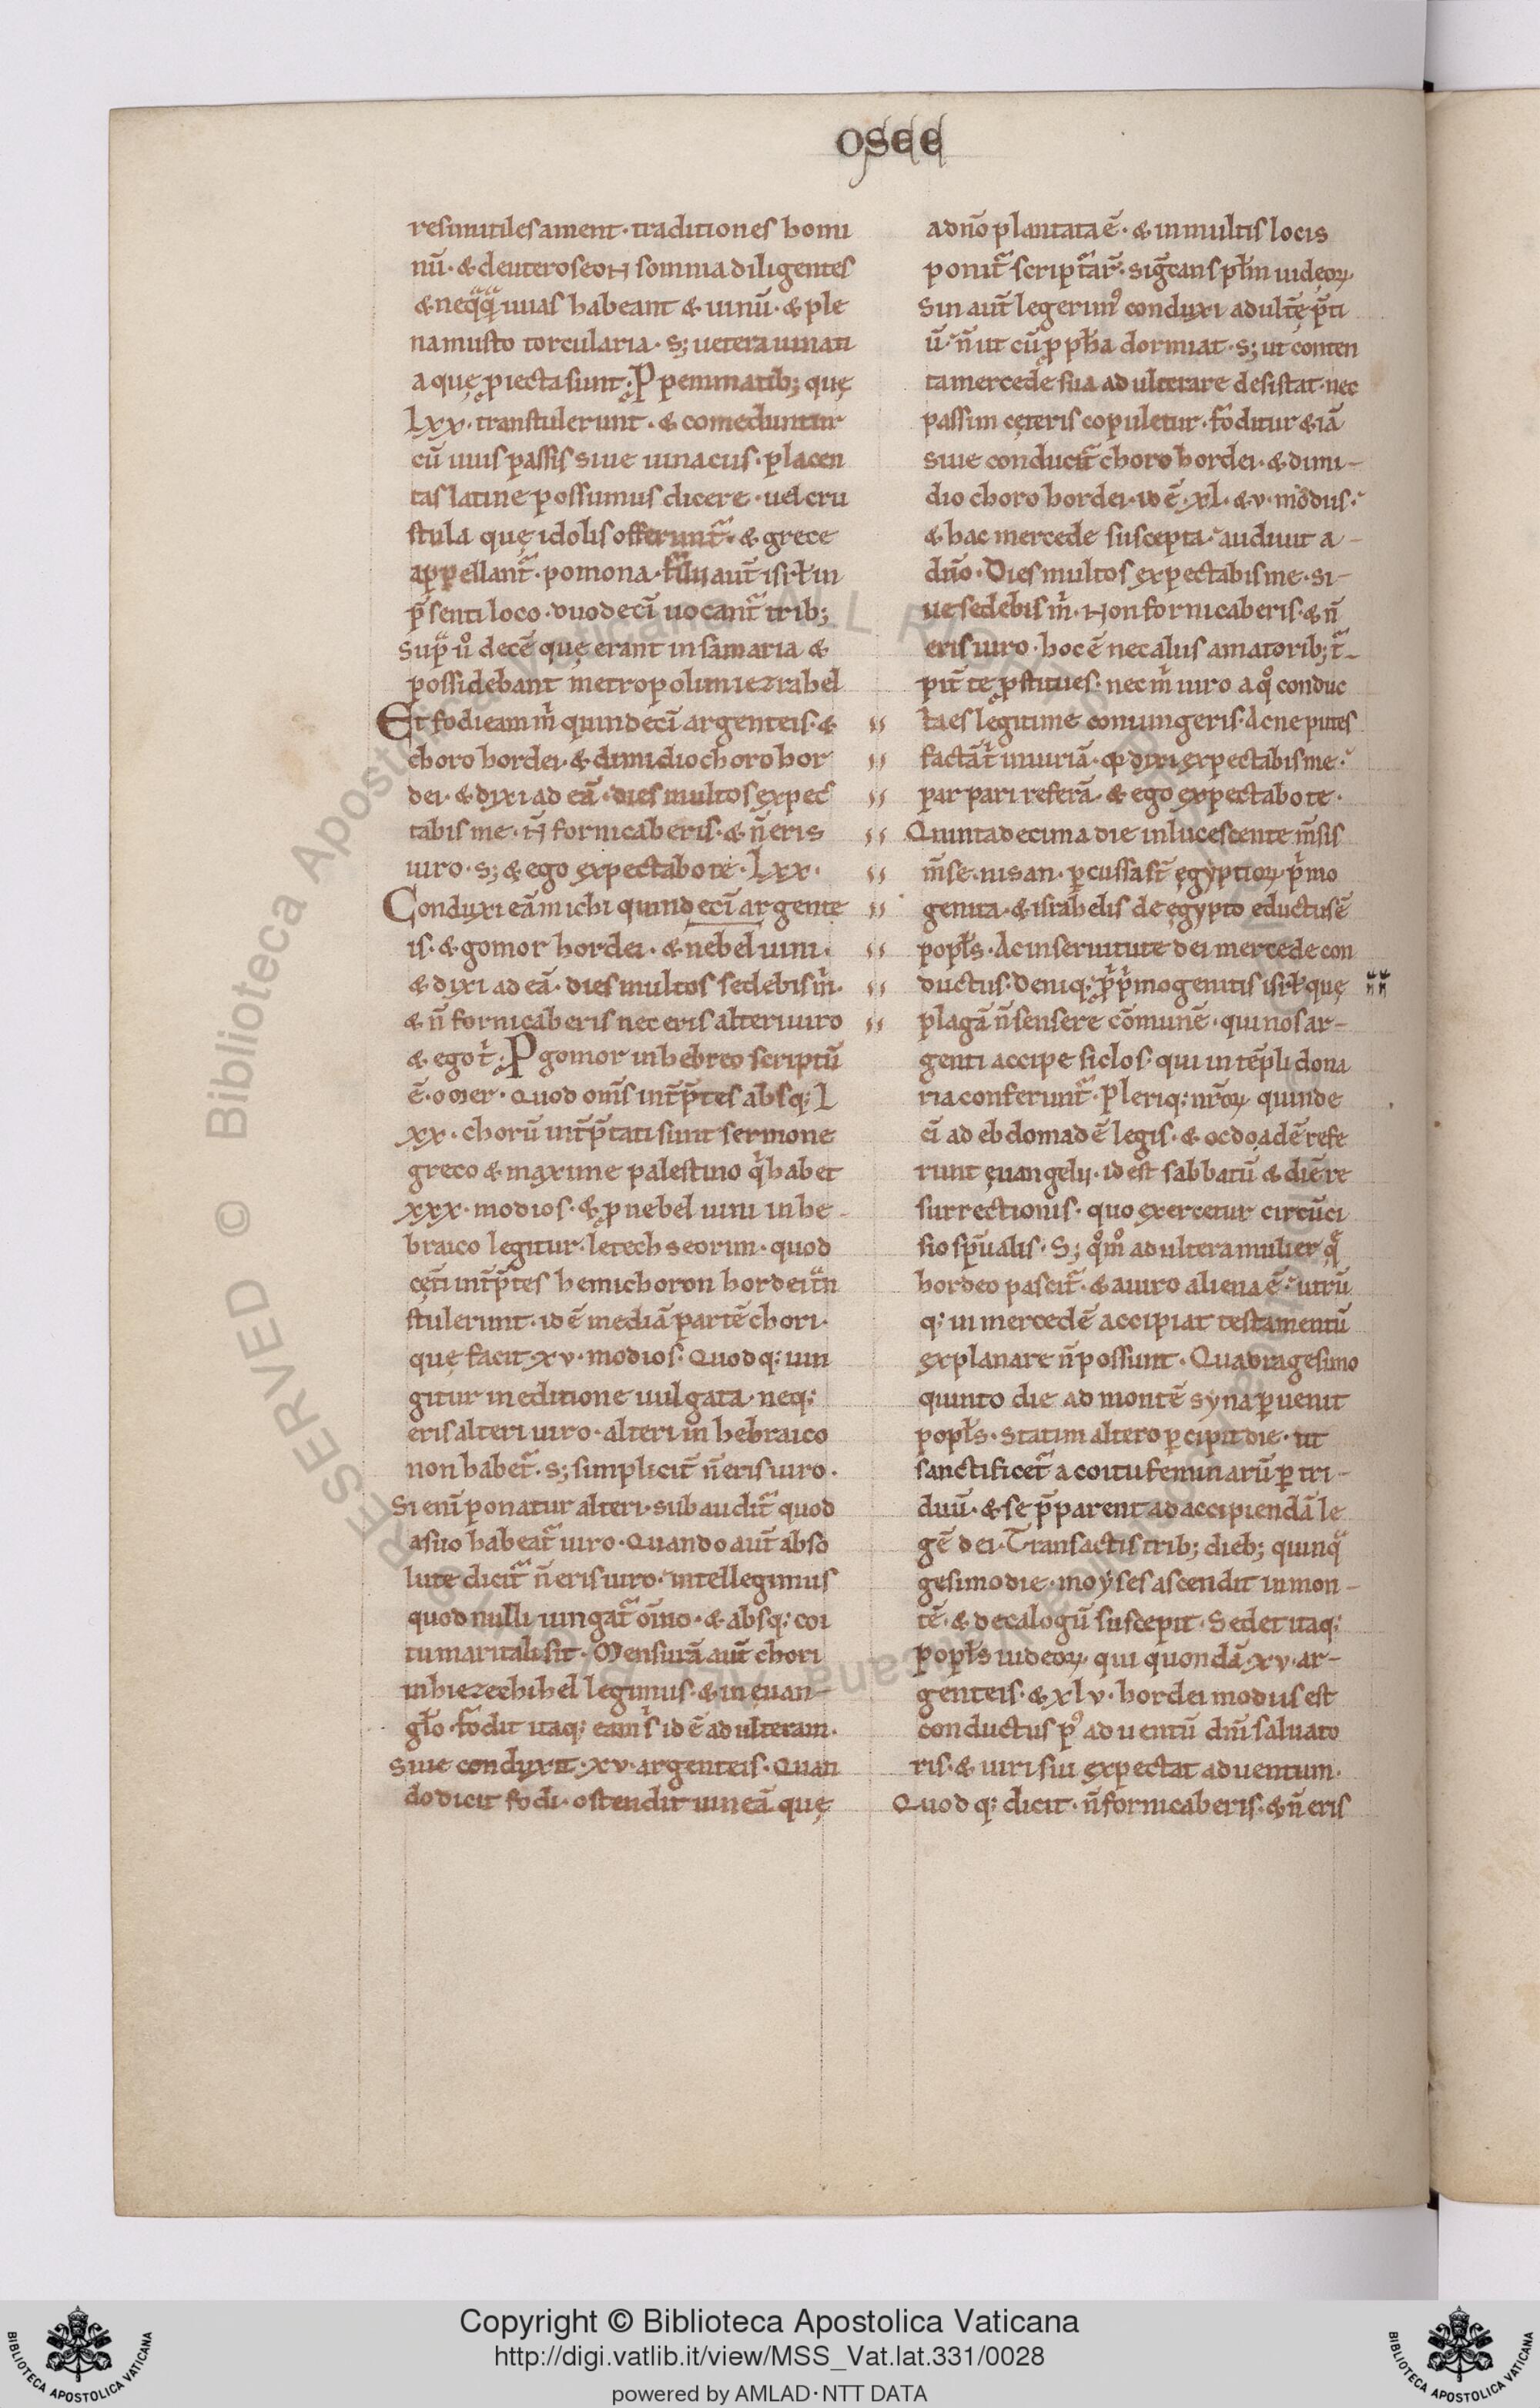 OSEE
resinutiles ament · traditiones homi
nū · & deuteroseon somnia diligentes
& neq̄q̄ uuas habeant & uinū · & ple
na musto torcularia · s; uetera uinati
a quę ꝓiecta sunt · P pemmatib; quę
Lxx · transtulerunt · & comeduntur
cū uuis passis siue uinaciis · placen
tas latine possumus dicere · uel cru
stula quę idolis offerunt̃ · & grece
appellant̃ · pomona · filii aut̄ isrł in
p̄senti loco · duodecī uocant̃ trib;
Sup̃ ů decē quę erant in samaria &
possidebant metropolim iezrahel
Et fodi eam m̍ quindecī argenteis · &
choro hordei · & dimidio choro hor
dei · & dixi ad eā · dies multos expec
tabis me · N̄ fornicaberis · & n̄ eris
uiro · s; & ego expectabo te · Lxx ·
Conduxi eā michi quindecī argente
is · & gomor hordei · & nebel uini ·
& dixi ad eā · dies multos sedebis m̍ ·
& n̄ fornicaberis nec eris alteri uiro
& ego t̍ · P gomor in hebreo scriptū
ē · omer · Quod om̄s int̄p̄tes absq; L
xx · chorū int̄p̄tati sunt sermone
greco & maxime palestino q̍ habet
xxx · modios · & ꝓ nebel uini in he
braico legitur · letech seorim · quod
cęt̄i int̄p̄tes hemichoron hordei t̃n
stulerunt · id ē mediā partē chori ·
quę facit · xv · modios · Quodq; iun
gitur in editione uulgata · neq;
eris alteri uiro · alteri in hebraico
non habet̃ · s; simplicit̄ n̄ eris uiro ·
Si eni ponatur alteri · subaudit̃ quod
a suo habeat̃ uiro · Quando aut̄ abso
lute dicit̃ n̄ eris uiro · intellegimus
quod nulli iungat̃ om̄o · & absq; coi
tu maritali sit · Mensurā aut̄ chori
in hiezechihel legimus · & in euan-
glo · fodit itaq; eam · id ē adulteram ·
Siue conduxit · xv · argenteis · Quan
do dicit fodi · ostendit uineā quę
a dn̄o plantata ē · & in multis locis
ponit̃ scriptar̃ · sig̃cans pplm iudeoꝝ
Sin aut̄ legerim⁹ conduxi adult̄ę p̄ti
ū · n̄ ut cū ꝓppha dormiat · s; ut conten
ta mercede sua adulterare desistat · nec
passim cęteris copuletur · foditur & iā
siue conducit̃ choro hordei · & dimi-
dio choro hordei · id ē · xl · & v · modiis ·
& hac mercede suscepta · audiuit a-
dn̄o · Dies multos expectabis me · si-
ue sedebis m̍ · Non fornicaberis · & n̄
eris uiro · hoc ē nec aliis amatorib; t̃-
pit̄ te ꝓstitues · nec m̍ uiro a q° conduc
ta es legitime coniungeris · Ac ne putes
factā t̍ iniuriā · quod dixi expectabis me ·
par pari referā · & ego expectabo te ·
Quinta decima die inlucescente m̄sis
m̄se · nisan · ꝑcussa s̄t ęgyptioꝝ p̍mo
genita · & israhelis de ęgypto eductus ē
popłs · Ac in seruitute dei mercede con
ductus · Deniq; ꝓ p̍mogenitis isrł quę
plagā n̄ sensere cōmunē · quinos ar-
genti accipe siclos · qui in tēpli dona
ria conferunt̃ · Pleriq; nr̄oꝝ quinde
cī ad ebdomadē legis · & ocdoadē refe
runt ęuangelii · id est sabbatū & diē re
surrectionis · quo exercetur circūci
sio sp̄ualis · S; q°m° adultera mulier q̃
hordeo pascit̃ · & a uiro aliena ē · utrū
q; in mercedē accipiat testamentū
explanare n̄ possunt · Quadragesimo
quinto die ad montē syna ꝑuenit
popłs · Statim altero ꝑcipit die · ut
sanctificet̃ a coitu feminarū ꝑ tri-
duū · & se p̄parent ad accipiendā le
gē dei · Transactis trib; dieb; quinq̃
gesimo die · moyses ascendit in mon-
tē · & decalogū suscepit · Sedet itaq;
popłs iudeoꝝ · qui quondā · xv · ar-
genteis · & xlv · hordei modiis est
conductus p⁹ aduentū dn̄i saluato
ris · & uiri sui expectat aduentum ·
Quodq; dicit · n̄ fornicaberis · & n̄ eris
Copyright © Biblioteca Apostolica Vaticana
http://digi.vatlib.it/view/MSS_Vat.lat.331/0028
powered by AMLAD·NTT DATA
BIBLIOTECA APOSTOLICA VATICANA
BIBLIOTECA APOSTOLICA VATICANA